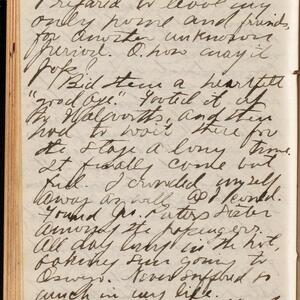 Prepared to leave my
only home and friends
for another unknown
period. O how may it
pop?
Bid them a heartfelt
"good bye." Footed it up
to Walworth, and then
had to wait there for
the stage a long time.
It finally come out
full. I crowded myself
away as well as I could.
Found Mrs. Sister
among the passengers.
all day long in the hot,
sun going to
Oswego. Never suffered so
much in my life.